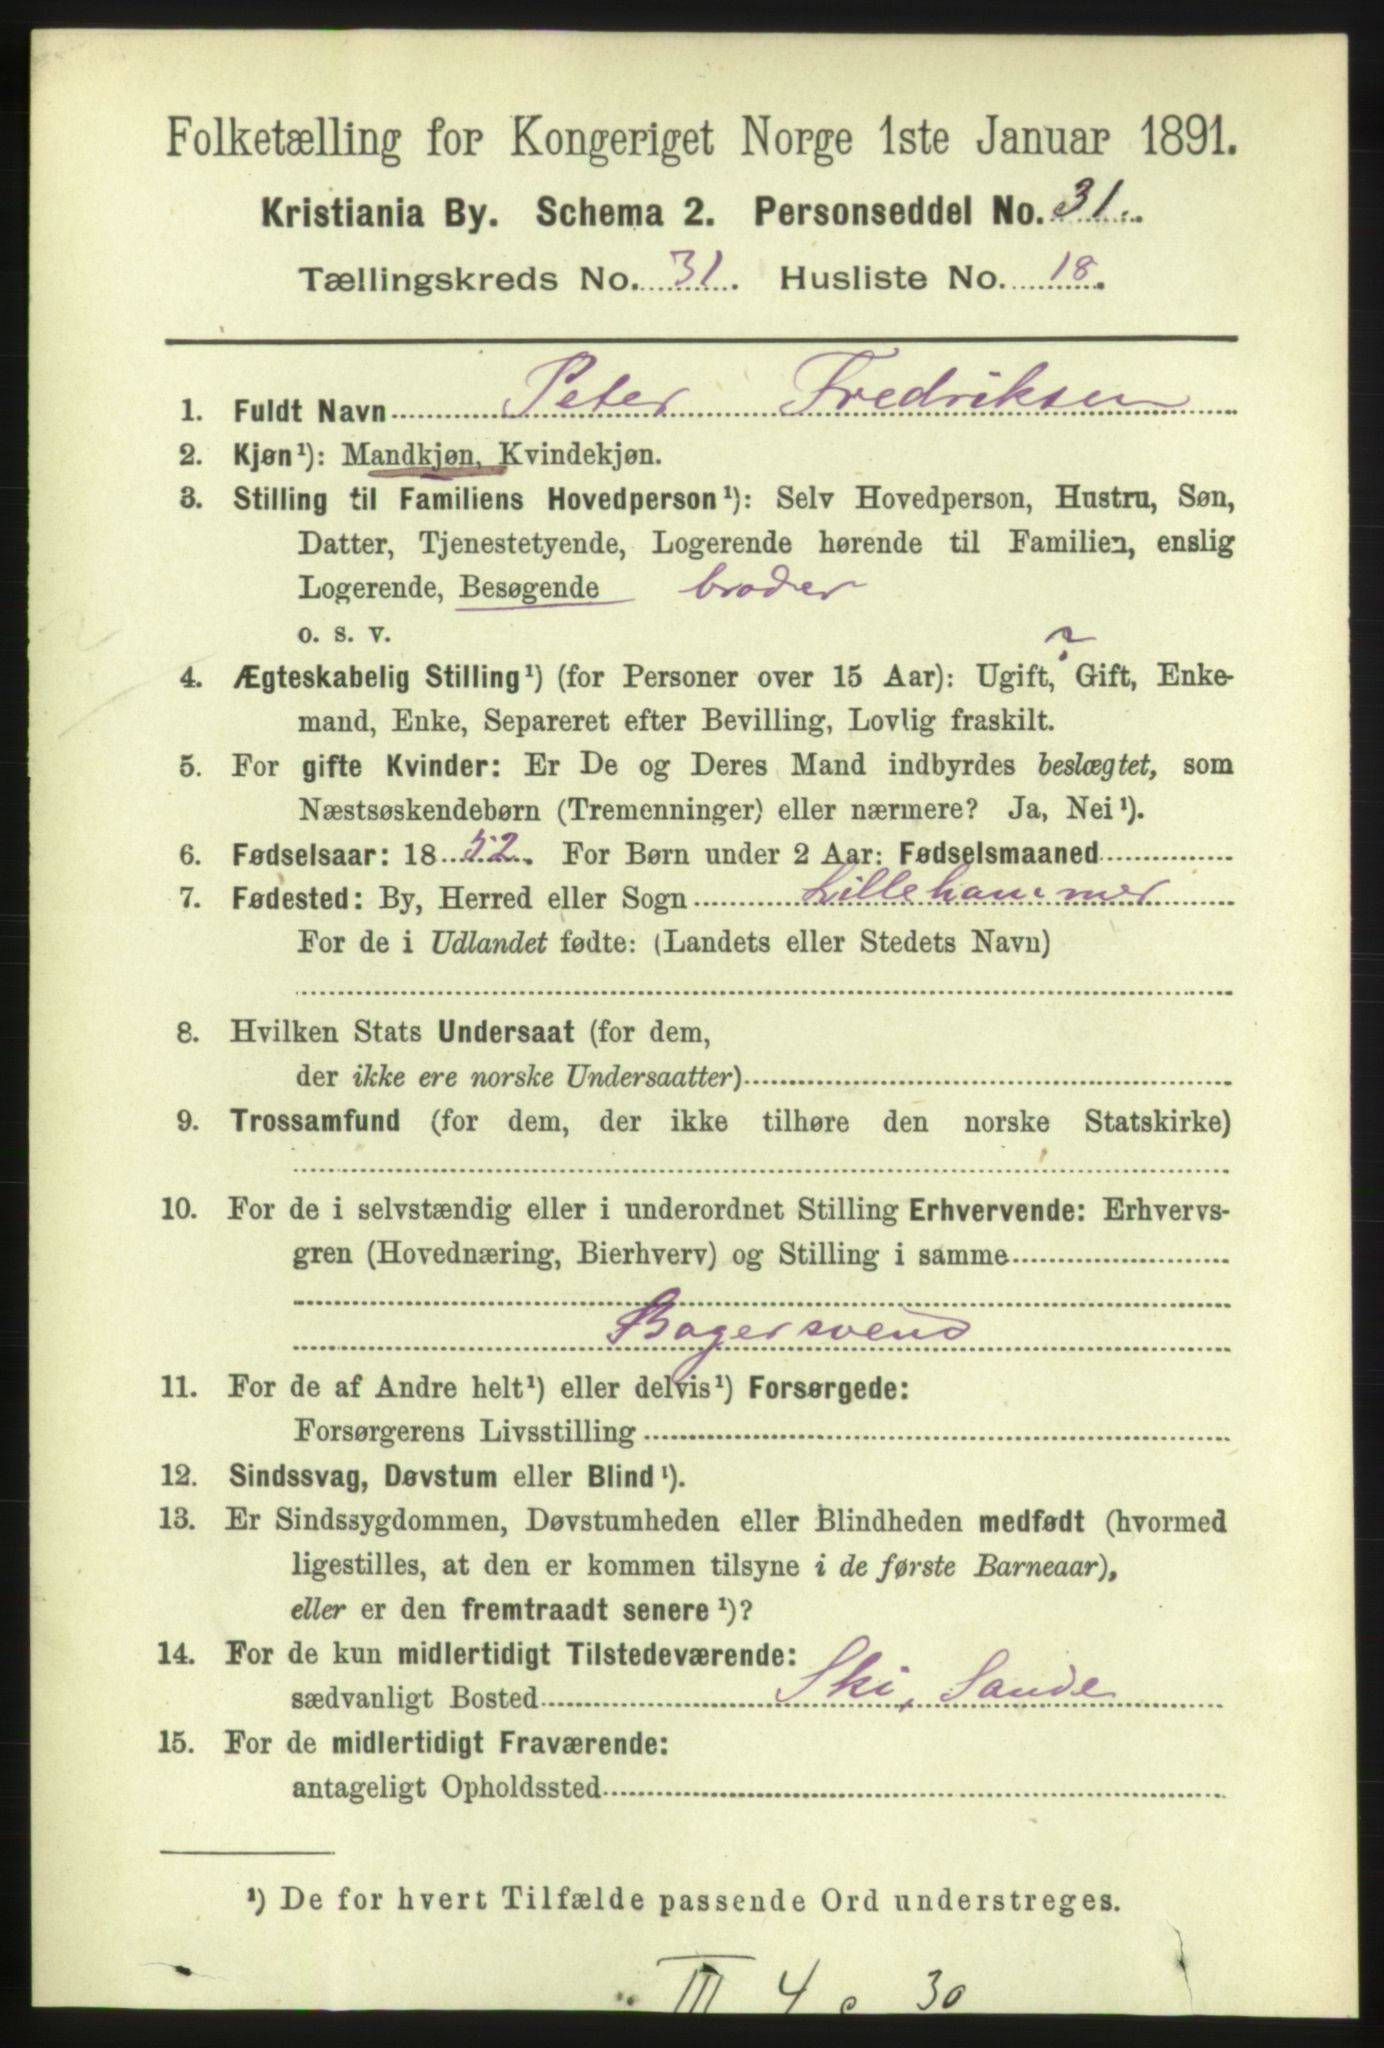 Folketælling for Kongeriget Norge 1ste Januar 1891.
Kristiania By. Schema 2. Personseddel No. 31.
Tællingskreds No. 31. Husliste No. 18.
1. Fuldt Navn Peter Fredriksen
2. Kjøn¹): Mandkjøn, Kvindekjøn.
3. Stilling til Familiens Hovedperson¹): Selv Hovedperson, Hustru, Søn,
Datter, Tjenestetyende, Logerende hørende til Familien, enslig
Logerende, Besøgende broder
o. s. v.
?
4. Ægteskabelig Stilling¹) (for Personer over 15 Aar): Ugift, Gift, Enke-
mand, Enke, Separeret efter Bevilling, Lovlig fraskilt.
5. For gifte Kvinder: Er De og Deres Mand indbyrdes beslægtet, som
Næstsøskendebørn (Tremenninger) eller nærmere? Ja, Nei¹).
6. Fødselsaar: 1852. For Børn under 2 Aar: Fødselsmaaned
7. Fødested: By, Herred eller Sogn Lillehammer
For de i Udlandet fødte: (Landets eller Stedets Navn)
8. Hvilken Stats Undersaat (for dem,
der ikke ere norske Undersaatter)
9. Trossamfund (for dem, der ikke tilhøre den norske Statskirke)
10. For de i selvstændig eller i underordnet Stilling Erhvervende: Erhvervs-
gren (Hovednæring, Bierhverv) og Stilling i samme
Bagersvend
11. For de af Andre helt¹) eller delvis¹) Forsørgede:
Forsørgerens Livsstilling
12. Sindssvag, Døvstum eller Blind¹).
13. Er Sindssygdommen, Døvstumheden eller Blindheden medfødt (hvormed
ligestilles, at den er kommen tilsyne i de første Barneaar),
eller er den fremtraadt senere¹)?
14. For de kun midlertidigt Tilstedeværende:
sædvanligt Bosted Ski, Sande
15. For de midlertidigt Fraværende:
antageligt Opholdssted
¹) De for hvert Tilfælde passende Ord understreges.
III 4 30